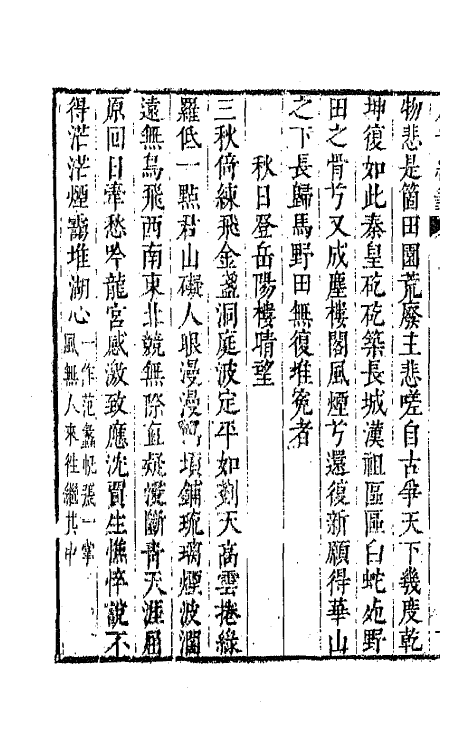 物悲是箇田園荒廢主悲嗟自古爭天下幾度乾
坤復如此秦皇矻矻築長城漢祖區區白蛇死野
田之骨兮又成塵樓閣風煙兮還復新願得華山
之下長歸馬野田無復堆寃者
秋日登岳陽樓晴望
三秋倚練飛金盞洞庭波定平如剗天高雲捲綠
羅低一點君山礙人眼漫漫萬頃鋪琉璃煙波闊
遠無鳥飛西南東北競無際直疑侵斷青天涯屈
原回日牽愁吟龍宮感激致應沈賈生憔悴說不
得茫茫煙靄堆湖心一作范蠡帆張一掌
風無人來往繼其中